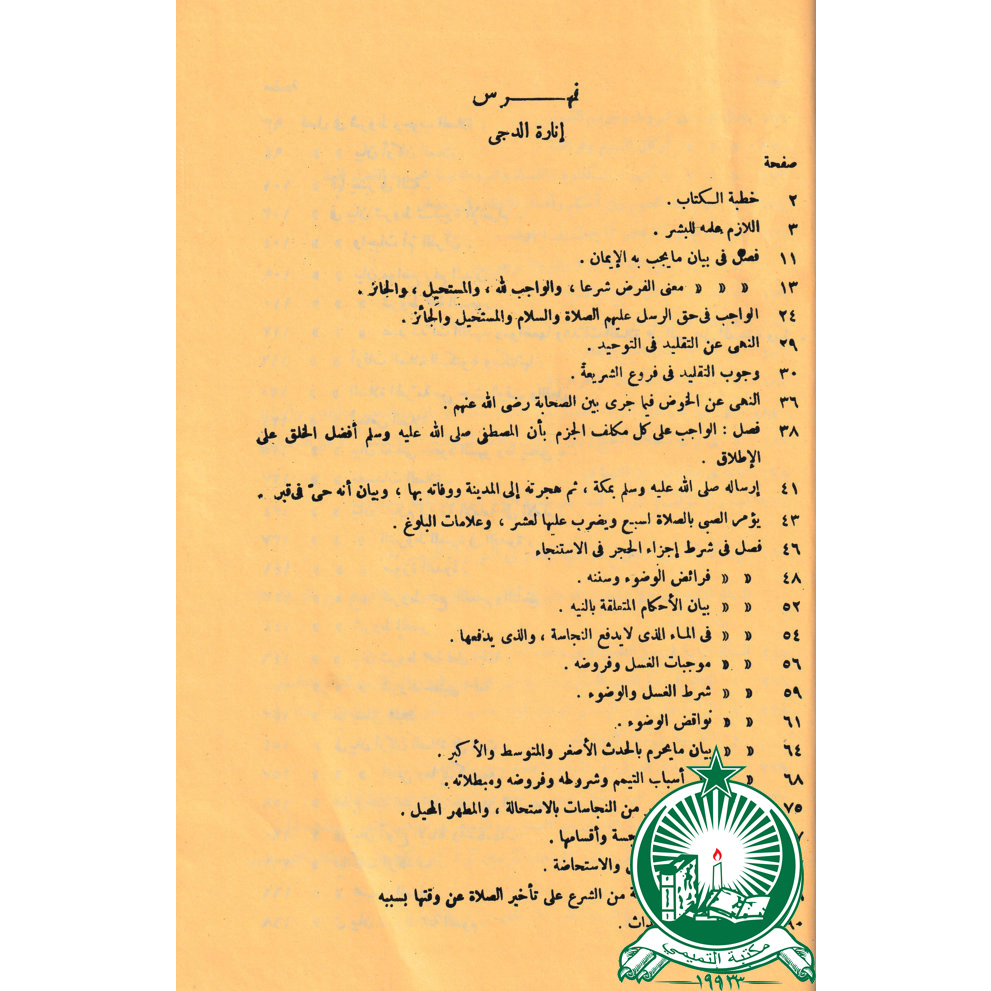 فهرس
إنارة الدجى
صفحة
٢ خطبة الكتاب .
٣ اللازم علمه للبشر .
١١ فصل فى بيان مايجب به الإيمان .
١٣ » » » معنى الفرض شرعا ، والواجب لله ، والمستحيل ، والجائز .
٢٤ الواجب فى حق الرسل عليهم الصلاة والسلام والمستحيل والجائز .
٢٩ النهى عن التقليد فى التوحيد .
٣٠ وجوب التقليد فى فروع الشريعة .
٣٦ النهى عن الخوض فيما جرى بين الصحابة رضى الله عنهم .
٣٨ فصل : الواجب على كل مكلف الجزم بأن المصطفى صلى الله عليه وسلم أفضل الخلق على
الإطلاق .
٤١ إرساله صلى الله عليه وسلم بمكة ، ثم هجرته إلى المدينة ووفاته بها ، وبيان أنه حى فى قبر .
٤٣ يؤمر الصبى بالصلاة لسبع ويضرب عليها لعشر ، وعلامات البلوغ .
٤٦ فصل فى شرط إجزاء الحجر فى الاستنجاء
٤٨ » » فرائض الوضوء وسننه .
٥٢ » » بيان الأحكام المتعلقة بالنيه .
٥٤ » » فى الماء الذى لايدفع النجاسة ، والذى يدفعها .
٥٦ » » موجبات الغسل وفروضه .
٥٩ » » شرط الغسل والوضوء .
٦١ » » نواقض الوضوء .
٦٤ » » بيان مايحرم بالحدث الأصغر والمتوسط والأكبر .
٦٨ » أسباب التيمم وشروطه وفروضه ومبطلاته .
٧٥ من النجاسات بالاستحالة ، والمطهر المحيل .
وأقسامها .
والاستحاضة .
من الشرع على تأخير الصلاة عن وقتها بسببه
مكتبة التميمي
١٩٩٣٣